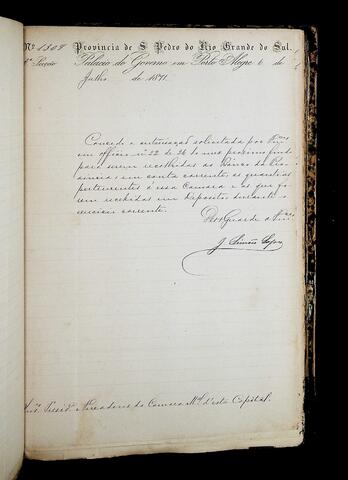 Nº 1504 Provincia de S Pedro do Rio Grande do Sul.
Secção Palacio do Governo em Porto Alegre 6 de
Julho de 1871.
Concedo a autorisação solicitada por Vmces
em officio nº 22 de 26 do mez proximo findo
para serem recolhidas ao Banco da Pro
vincia, em conta corrente, as quantias
pertencentes á essa Camara e as que fo
rem recebidas em deposito, durante o
exercicio corrente.
Deos Guarde a Vmces
J. Simões Lopes
Presid. e Vereadores da Camara Mal d'esta Capital.